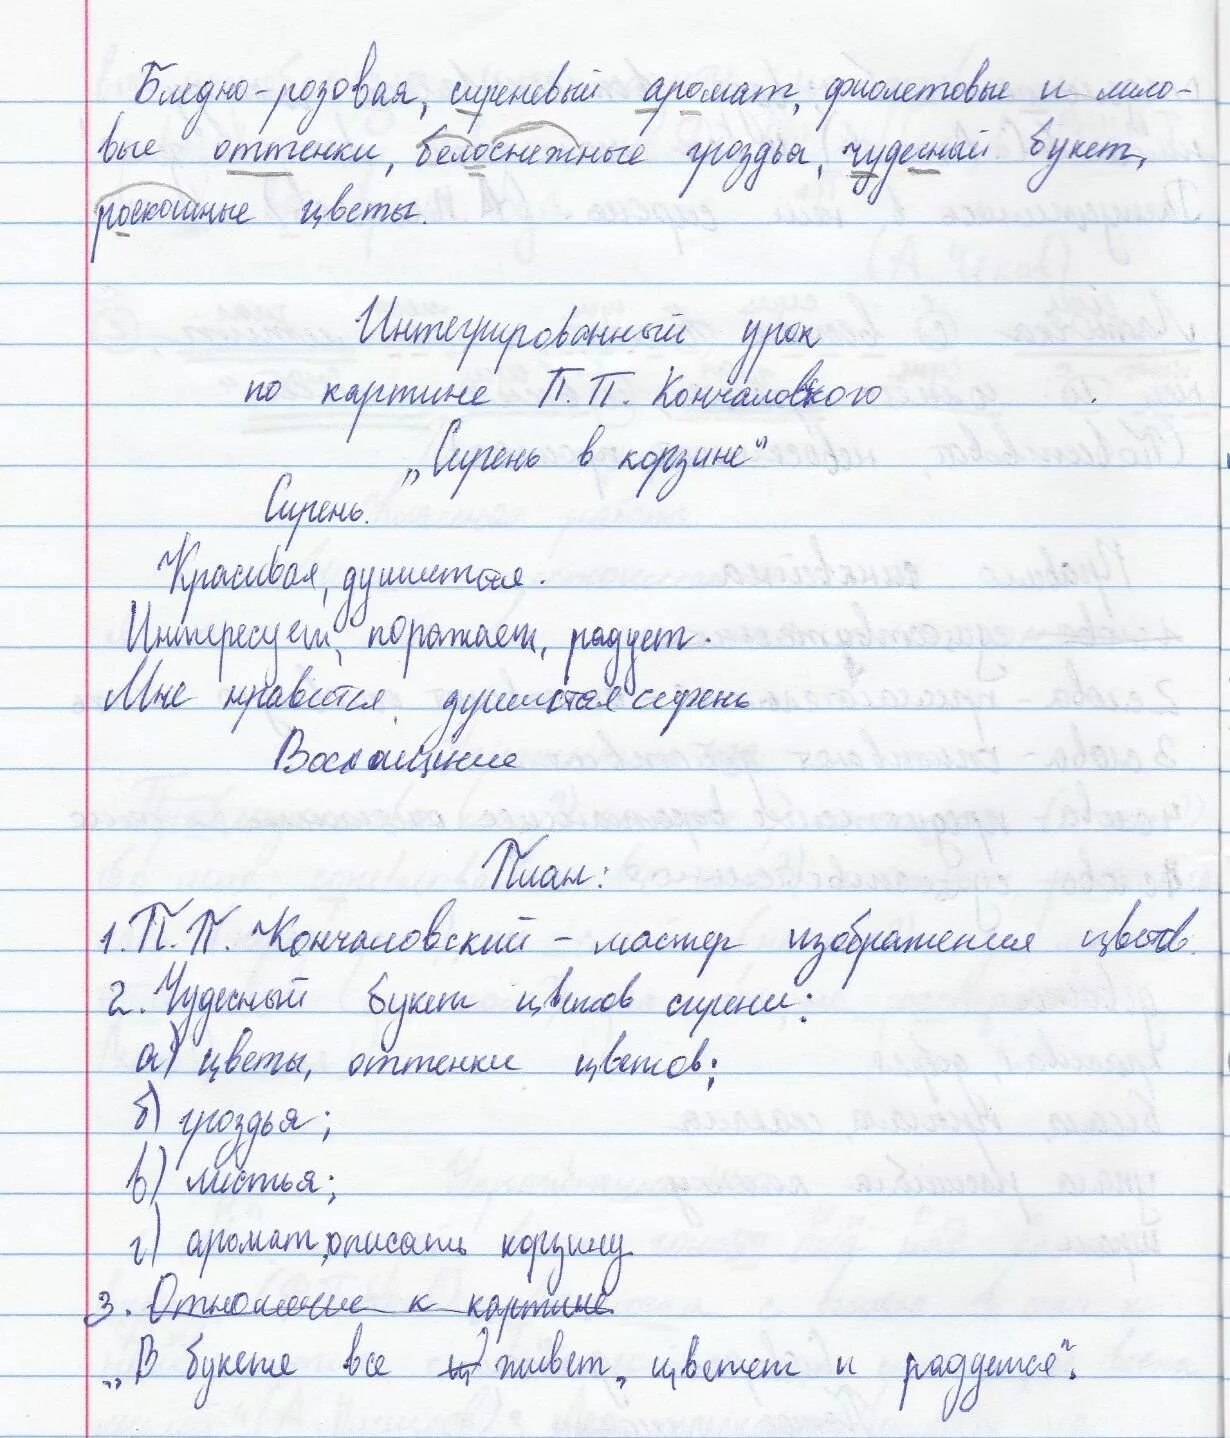 Бледно-розовая, сиреневый аромат, фиолетовые и лило-
вые оттенки, белоснежные гроздья, чудесный букет,
роскошные цветы.
Интегрированный урок
по картине П.П. Кончаловского
„Сирень в корзине"
Сирень.
Красивая, душистая.
Интересует, поражает, радует.
Мне нравится душистая сирень
Восхищение
План:
1. П.П. Кончаловский - мастер изображения цветов.
2. Чудесный букет цветов сирени:
а) цветы, оттенки цветов;
б) гроздья;
в) листья;
г) аромат, описать корзину.
3. Отношение к картине.
„В букете все живет, цветет и радуется".